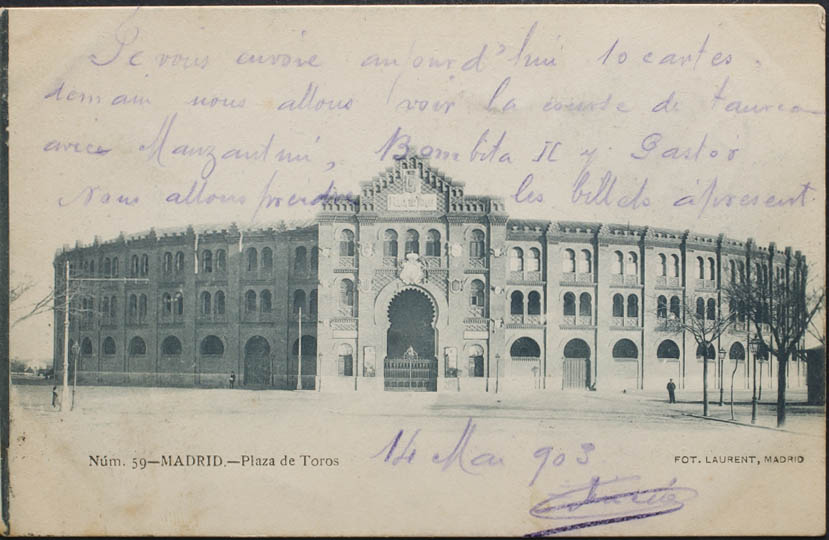 Je vous envoie aujourd'hui 10 cartes.
demain nous allons voir la course de taureau
avec Manzantini, Bombita II y Pastor
Nous allons prendre les billets apresent
PLAZA DE TOROS
Núm. 59—MADRID.—Plaza de Toros
14 Mai 903
FOT. LAURENT, MADRID